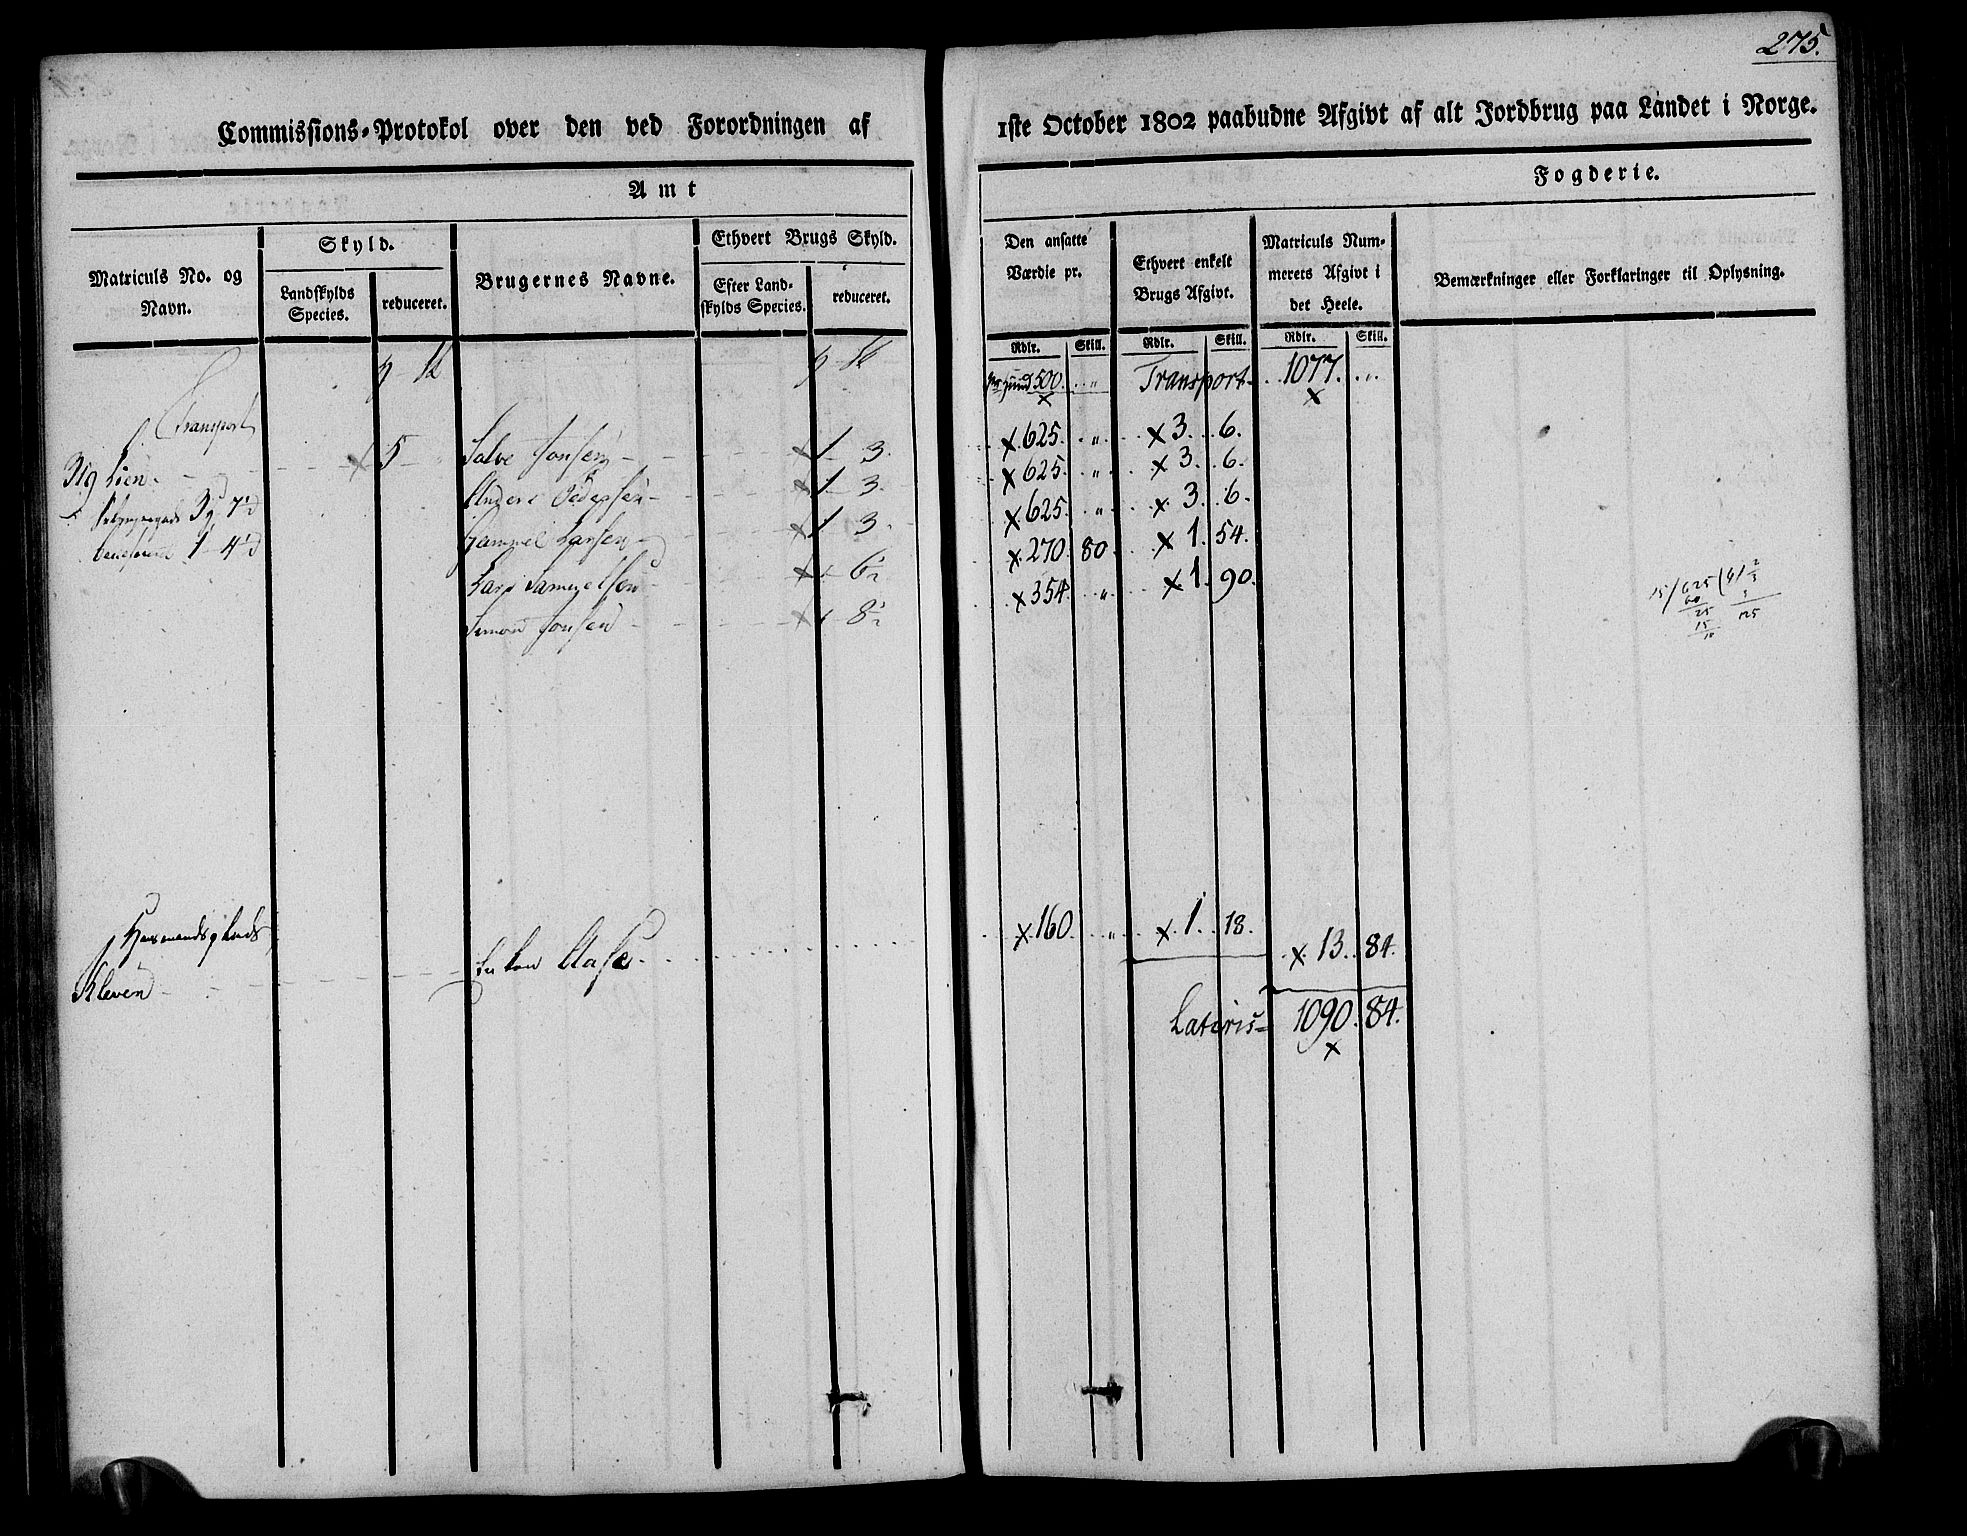 275.
Commissions-Protokol over den ved Forordningen af 1ste October 1802 paabudne Afgivt af alt Jordbrug paa Landet i Norge.
Amt Fogderie.
Matriculs No. og Navn.
Skyld.
Landskylds Species.
reduceret.
Brugernes Navne.
Ethvert Brugs Skyld.
Efter Landskylds Species.
reduceret.
Den ansatte Værdie pr.
Ethvert enkelt Brugs Afgivt.
Matriculs Nummerets Afgivt i det Heele.
Bemærkninger eller Forklaringer til Oplysning.
Rdlr. Skill. Rdlr. Skill. Rdlr. Skill.
Transport 500. „ Transport 1077. „
319 Lien 5 Salve Jonsen 1 3 625. „ 3. 6.
3 7½ Anders Pedersen 1 3 625. „ 3. 6.
1 4½ Samuel Larsen 1 3 625. „ 3. 6.
Lars Samuelsen 6½ 270. 80 1. 54.
Simon Jonsen 8½ 354. „ 1. 90.
15/625(41⅔
60
25
15
10
3
125
Huusmands Plads
Kleven Enken Aase 160. „ 1. 18. 13. 84.
Lateris 1090. 84.